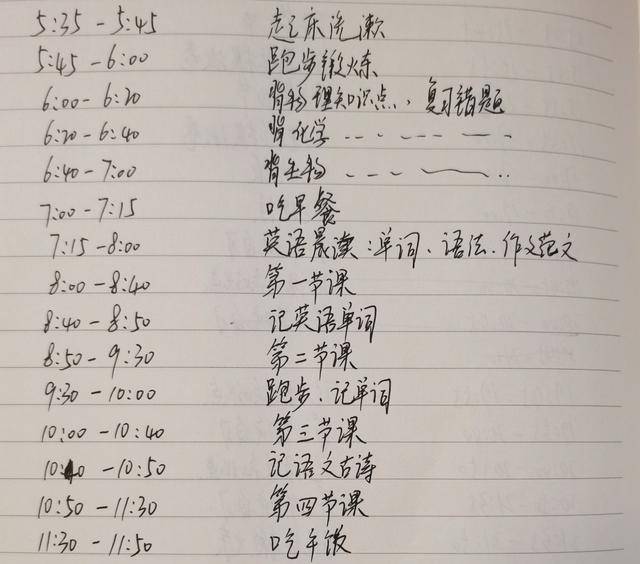 5:35 - 5:45 起床洗漱
5:45 - 6:00 跑步锻炼
6:00 - 6:20 背物理知识点、复习错题
6:20 - 6:40 背化学
6:40 - 7:00 背生物
7:00 - 7:15 吃早餐
7:15 - 8:00 英语晨读:单词、语法、作文范文
8:00 - 8:40 第一节课
8:40 - 8:50 记英语单词
8:50 - 9:30 第二节课
9:30 - 10:00 跑步、记单词
10:00 - 10:40 第三节课
10:40 - 10:50 记语文古诗
10:50 - 11:30 第四节课
11:30 - 11:50 吃午饭